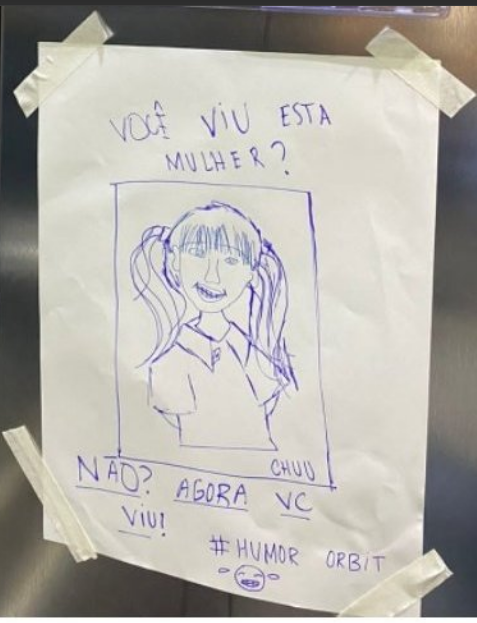 VOCÊ VIU ESTA
MULHER?
CHUU
NÃO? AGORA VC
VIU!
# HUMOR ORBIT